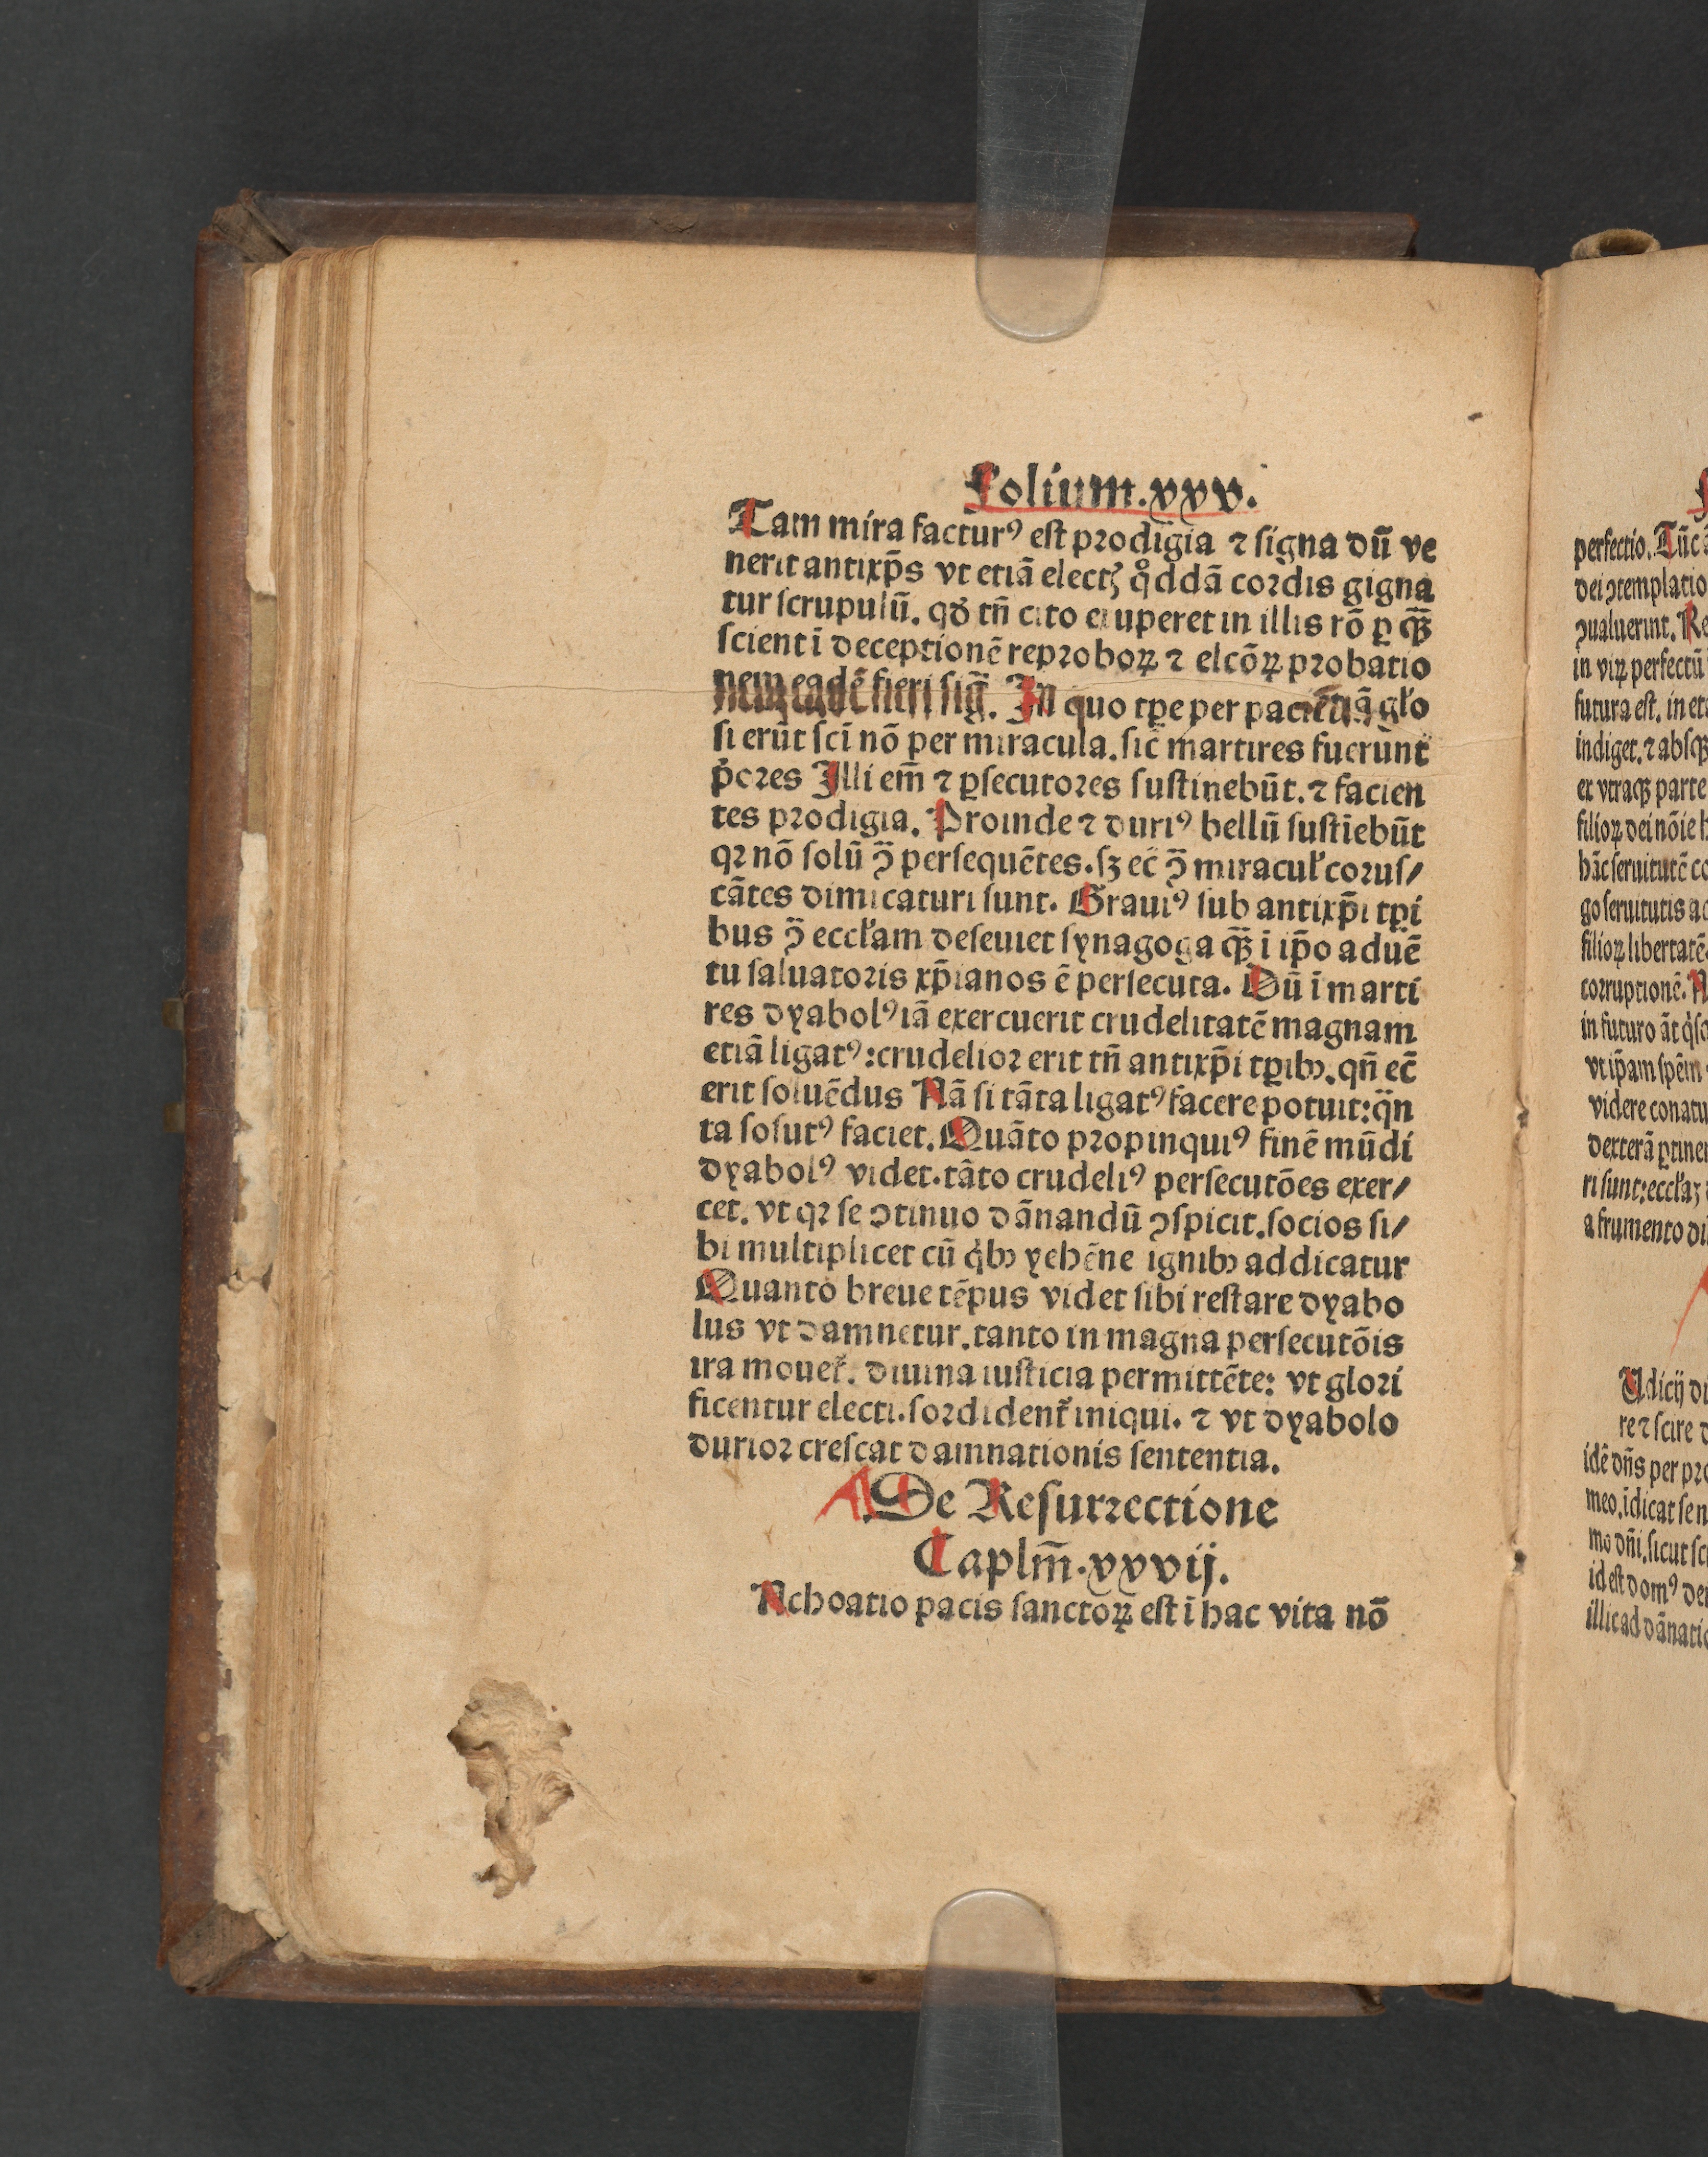 Folium.xxv.
Tam mira factur⁹ eſt prodigia ⁊ ſigna dū ve
nerit antixp̄s vt etiā electꝫ qͦddā cordis gigna
tur ſcrupulū. qđ tn̄ cito eiuperet in illis rō ꝑ qꝫ̄
ſcient ī deceptionē reproboꝝ ⁊ elcōꝝ probatio
nem eadē fieri ſiḡ. In quo tꝑe per paciētiā gło
ſi erūt ſcī nō per miracula. ſic̄ martires fuerunt
p̄ores Illi em̄ ⁊ ꝑſecutores ſuſtinebūt. ⁊ facien
tes prodigia. Proinde ⁊ duri⁹ bellū ſuſtīebūt
qꝛ nō ſolū ↄ̄ perſequētes. ſꝫ ec̄ ↄ̄ miracuł coruſ/
cātes dimicaturi ſunt. Graui⁹ ſub antixp̄i tꝑi
bus ↄ̄ eccłam deſeuiet ſynagoga qꝫ̄ ī ip̄o aduē
tu ſaluatoris xp̄ianos ē perſecuta. Dū ī marti
res dyabol⁹ iā exercuerit crudelitatē magnam
etiā ligat⁹: crudelior erit tn̄ antixp̄i tꝑibꝫ. qn̄ ec̄
erit ſoluēdus Nā ſi tāta ligat⁹ facere potuit: q̄n
ta ſolut⁹ faciet. Quāto propinqui⁹ finē mūdi
dyabol⁹ videt. tāto crudeli⁹ perſecutōes exer/
cet. vt qꝛ ſe ↄtinuo dānandū ↄſpicit. ſocios ſi/
bi multiplicet cū qͥbꝫ yehēne ignibꝫ addicatur
Quanto breue tēpus videt ſibi reſtare dyabo
lus vt damnetur. tanto in magna perſecutōis
ira mouet᷑. diuina iuſticia permittēte: vt glori
ficentur electi. ſordident᷑ iniqui. ⁊ vt dyabolo
durior creſcat damnationis ſententia.
De Reſurrectione
Caplm̄.xxvij.
Nchoatio pacis ſanctoꝝ eſt ī hac vita nō
perfectio. Tūc
dei ↄtemplatio
ↄualuerint. Re
in viꝝ perfectū
futura eſt. in et
indiget. ⁊ abſqꝫ
ex vtraqꝫ parte
filioꝝ dei nōie
hāc ſeruitutē co
go ſeruitutis ac
filioꝝ libertatē
corruptionē. N
in futuro āt
vt ip̄am ſpēm
videre conatu
dexterā ꝑtine
ri ſunt: eccłaꝫ
a frumento di
Udicij
re ⁊ ſcire
idē dn̄s per pro
meo. īdicat ſe n
mo dn̄i. ſicut ſc
id eſt dom⁹ de
illic ad dānatio